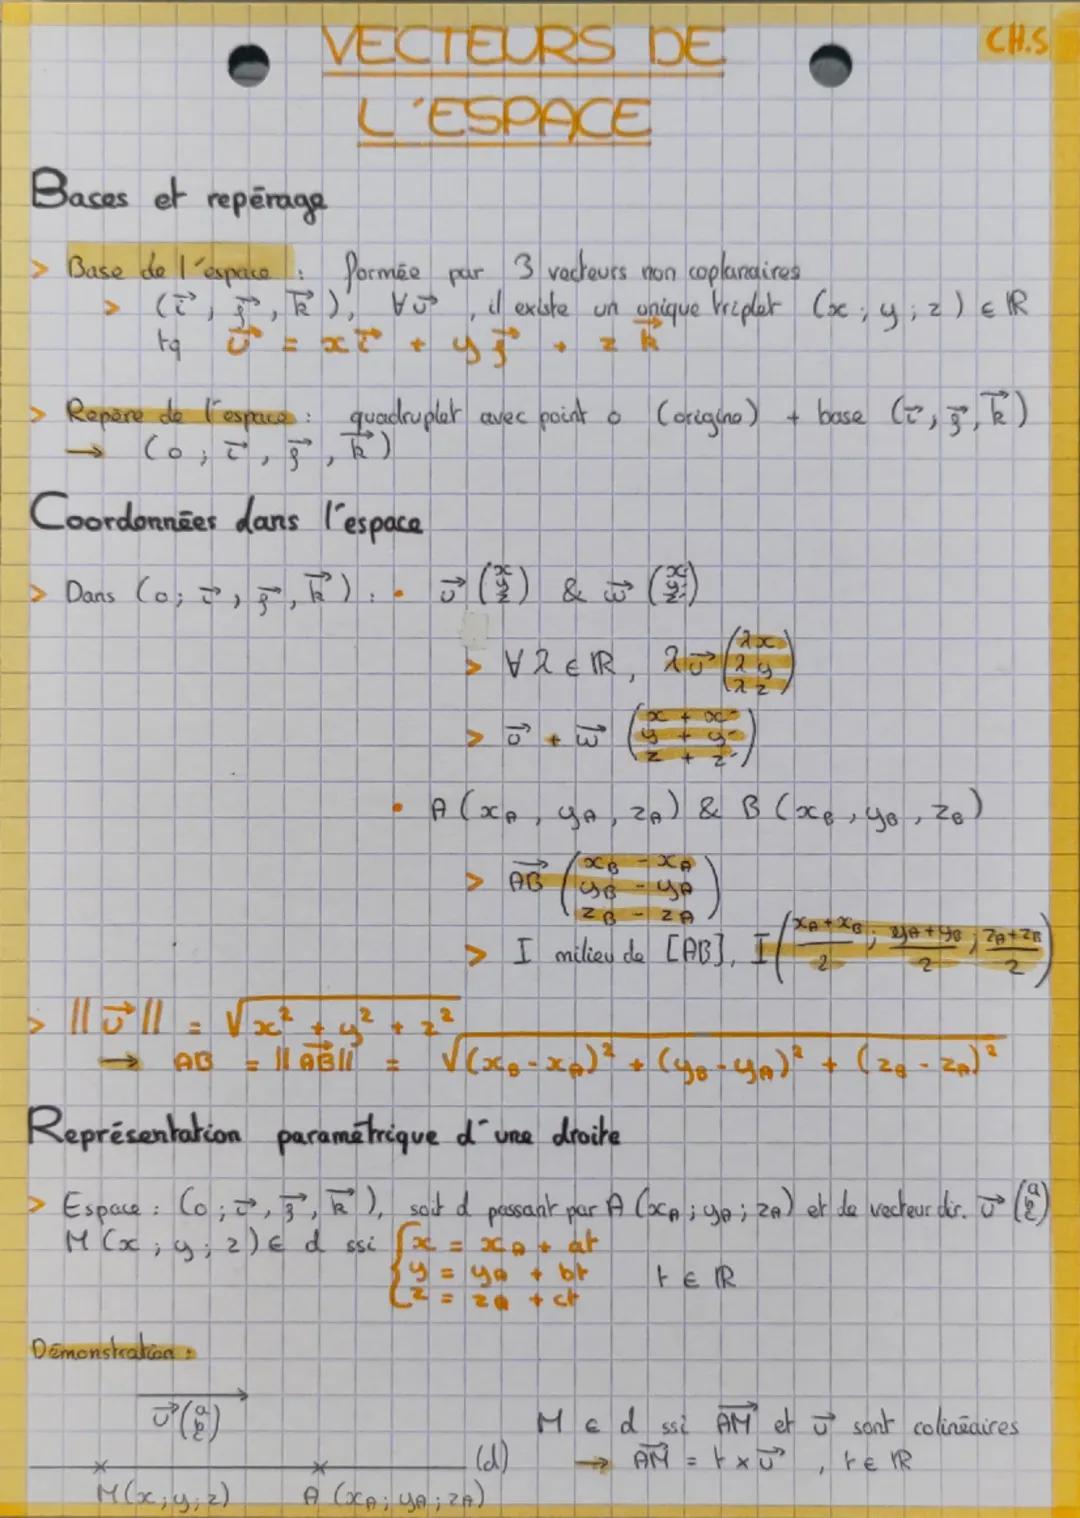 VECTEURS DE
L'ESPACE
CH.5
Bases et repérage
> Base de l'espace : formée par 3 vecteurs non coplanaires
> (i⃗ ; j⃗ , k⃗ ), ∀ u⃗ , il existe un unique triplet (x ; y ; z) ∈ ℝ
tq u⃗ = x i⃗ + y j⃗ + z k⃗
> Repère de l'espace : quadruplet avec point o (origine) + base (i⃗ , j⃗ , k⃗ )
→ (o ; i⃗ , j⃗ , k⃗ )
Coordonnées dans l'espace
> Dans (o; i⃗ , j⃗ , k⃗ ) : • u⃗ (x y z) & w⃗ (x' y' z')
> ∀ λ ∈ ℝ, λu⃗ (λx λy λz)
> u⃗ + w⃗ (x + x' y + y' z + z')
• A (xA , yA , zA) & B (xB , yB , zB)
> AB⃗ (xB - xA yB - yA zB - zA)
> I milieu de [AB], I (xA+xB/2 ; yA+yB/2 ; zA+zB/2)
> ||u⃗|| = √x² + y² + z²
→ AB = ||AB⃗|| = √(xB-xA)² + (yB-yA)² + (zB-zA)²
Représentation paramétrique d'une droite
> Espace : (o ; i⃗ , j⃗ , k⃗ ), soit d passant par A (xA ; yA ; zA) et de vecteur dir. u⃗ (a b c)
M (x ; y ; z) ∈ d ssi { x = xA + at
y = yA + bt t ∈ ℝ
z = zA + ct
Démonstration :
u⃗ (a b c)
M ∈ d ssi AM⃗ et u⃗ sont colinéaires
(d) → AM⃗ = t × u⃗ , t ∈ ℝ
M(x;y;z) A (xA; yA; zA)